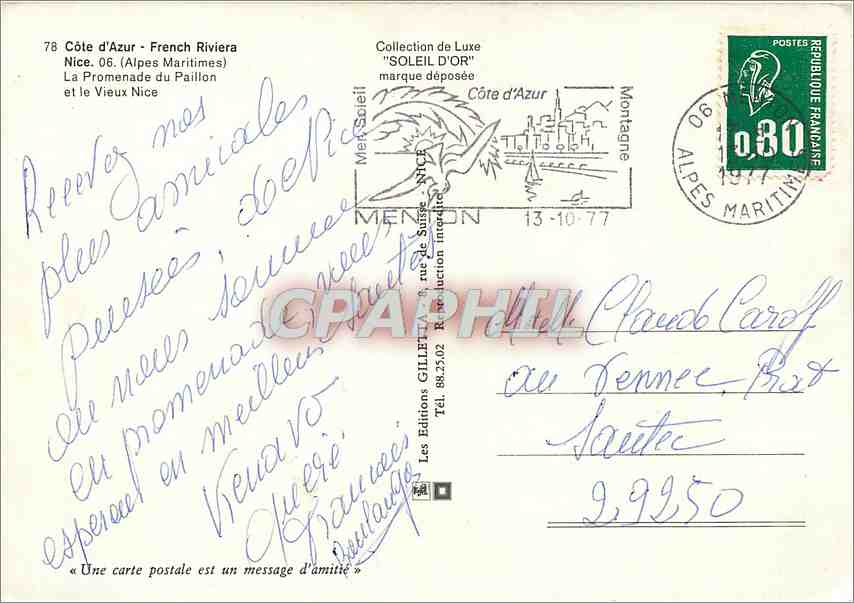 78 Côte d'Azur - French Riviera
Nice. 06. (Alpes Maritimes)
La Promenade du Paillon
et le Vieux Nice
Collection de Luxe
"SOLEIL D'OR"
marque déposée
Mer Soleil
Côte d'Azur
Montagne
MENTON
13-10-77
POSTES
REPUBLIQUE FRANÇAISE
0,80
06
1977
ALPES MARITIMES
Recevez nos
plus amicales
pensées, de Nice
ou nous sommes
en promenade
esperant en meilleur santé
François
Boulanger
« Une carte postale est un message d'amitié »
Les Editions GILLETTA - 8, rue de Suisse - NICE
Tél. 88.25.02 Reproduction interdite
CPAPHIL
Claude Caroff
au Vennec
Santec
29250